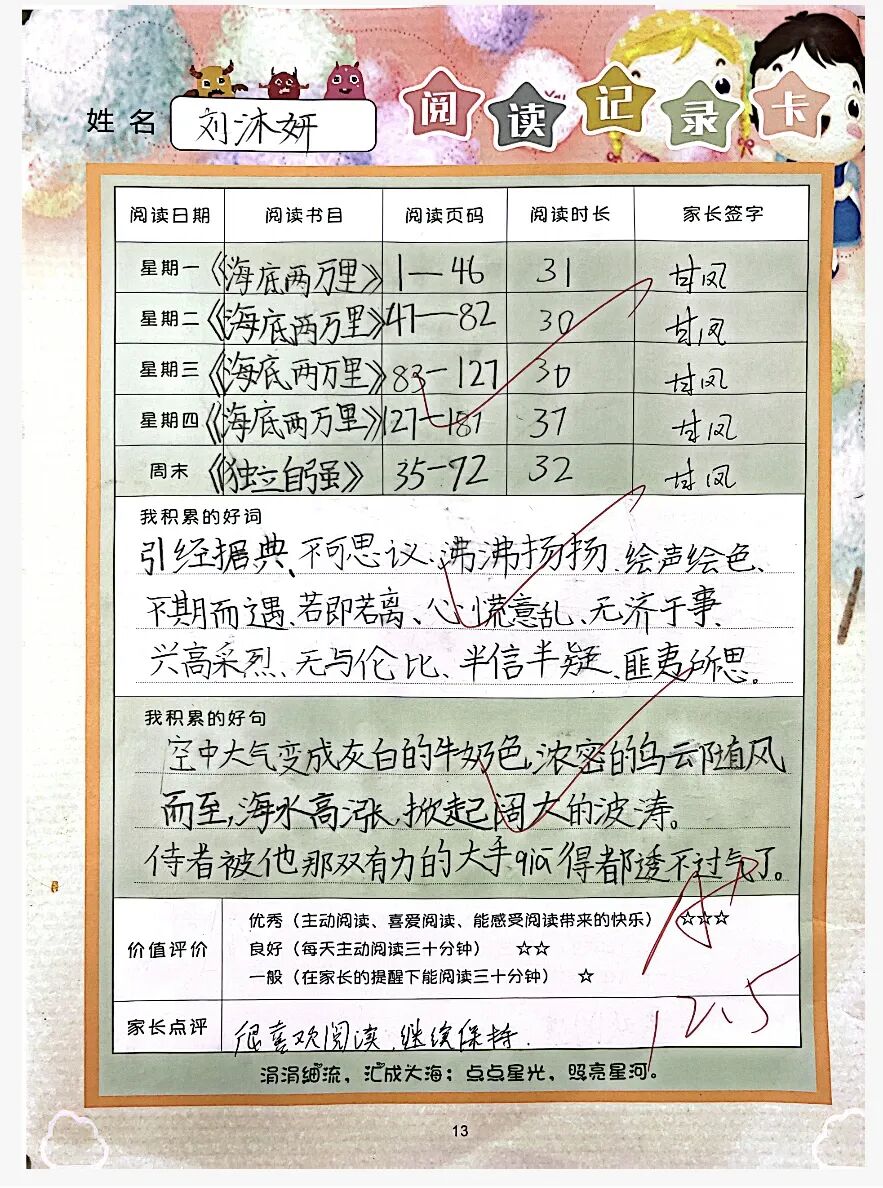 姓名 刘沐妍 阅读记录卡
阅读日期 阅读书目 阅读页码 阅读时长 家长签字
星期一 《海底两万里》 1—46 31 甘凤
星期二 《海底两万里》 47—82 30 甘凤
星期三 《海底两万里》 83—127 30 甘凤
星期四 《海底两万里》 127—181 37 甘凤
周末 《独立自强》 35—72 32 甘凤
我积累的好词
引经据典、不可思议、沸沸扬扬、绘声绘色、
不期而遇、若即若离、心慌意乱、无济于事、
兴高采烈、无与伦比、半信半疑、匪夷所思。
我积累的好句
空中大气变成灰白的牛奶色,浓密的乌云随风
而至,海水高涨,掀起阔大的波涛。
侍者被他那双有力的大手qiā得都透不过气了。
价值评价
优秀（主动阅读、喜爱阅读、能感受阅读带来的快乐） ☆☆☆
良好（每天主动阅读三十分钟） ☆☆
一般（在家长的提醒下能阅读三十分钟） ☆
A+
12.5
家长点评 很喜欢阅读,继续保持.
涓涓细流，汇成大海；点点星光，照亮星河。
13